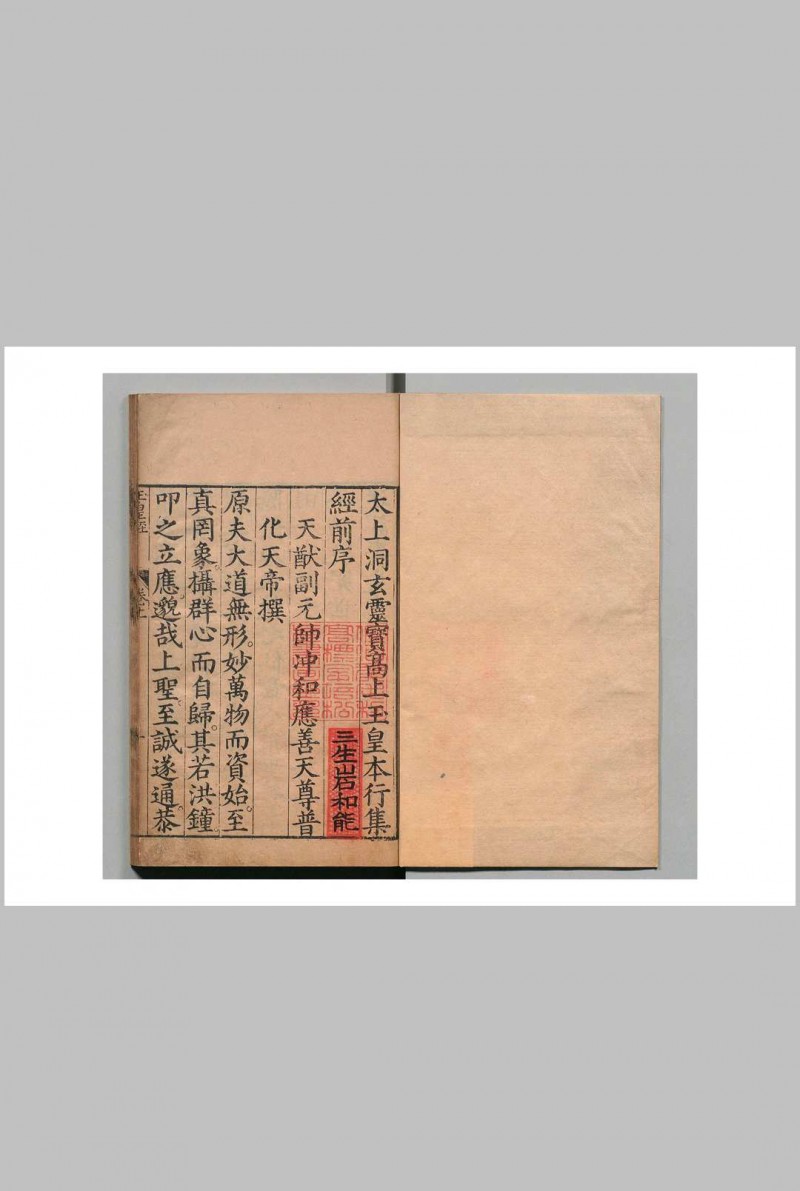 太上洞玄靈寶高上玉皇本行集
經前序
三生岩和能
天猷副元帥冲和應善天尊普
化天帝撰
原夫大道無形。妙萬物而資始。至
真罔象攝群心而自歸。其若洪鐘
叩之立應。邈哉上聖。至誠遂通。恭
玉皇經 卷上